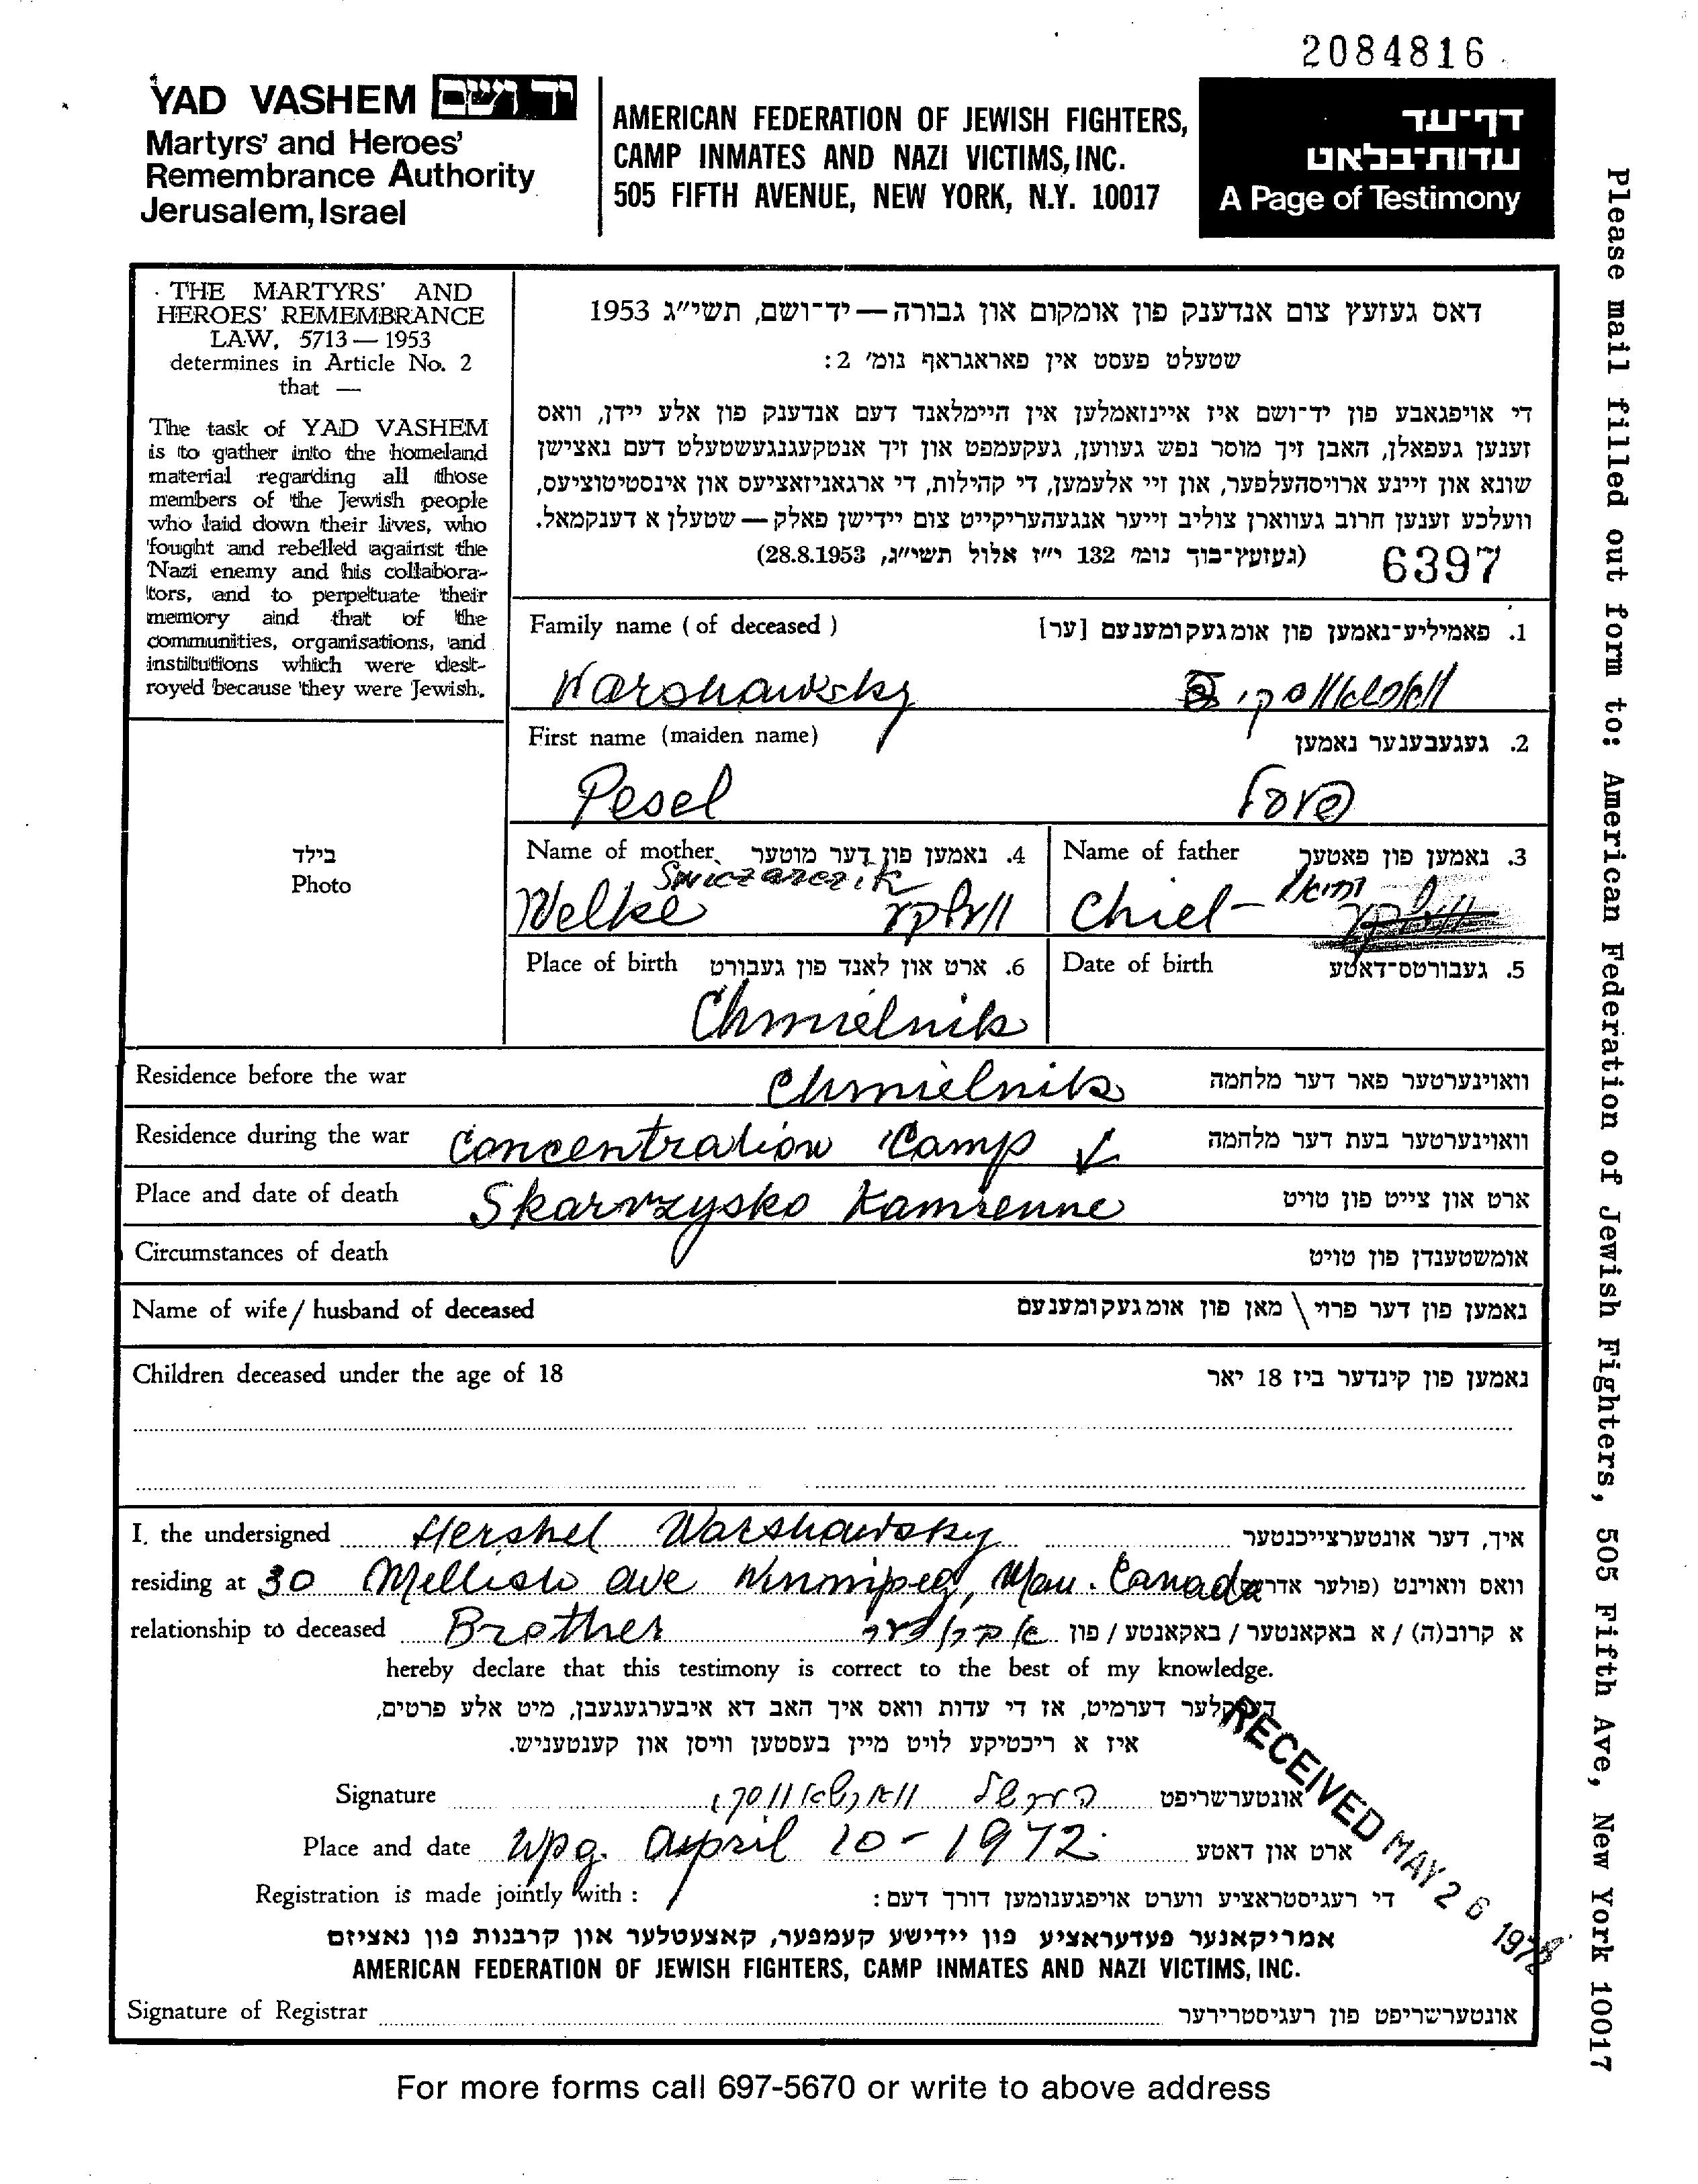 2084816
YAD VASHEM יד ושם
Martyrs' and Heroes'
Remembrance Authority
Jerusalem, Israel
AMERICAN FEDERATION OF JEWISH FIGHTERS,
CAMP INMATES AND NAZI VICTIMS, INC.
505 FIFTH AVENUE, NEW YORK, N.Y. 10017
דף־עד
עדות־בלאט
A Page of Testimony
THE MARTYRS' AND
HEROES' REMEMBRANCE
LAW, 5713 — 1953
determines in Article No. 2
that —
The task of YAD VASHEM
is to gather into the homeland
material regarding all those
members of the Jewish people
who laid down their lives, who
fought and rebelled against the
Nazi enemy and his collabora-
tors, and to perpetuate their
memory and that of the
communities, organisations, and
institutions which were dest-
royed because they were Jewish.
דאס געזעץ צום אנדענק פון אומקום און גבורה — יד־ושם, תשי״ג 1953
שטעלט פעסט אין פאראגראף נומ׳ 2:
די אויפגאבע פון יד־ושם איז איינזאמלען אין היימלאנד דעם אנדענק פון אלע יידן, וואס
זענען געפאלן, האבן זיך מוסר נפש געווען, געקעמפט און זיך אנטקעגנגעשטעלט דעם נאצישן
שונא און זיינע ארויסהעלפער, און זיי אלעמען, די קהילות, די ארגאניזאציעס און אינסטיטוציעס,
וועלכע זענען חרוב געווארן צוליב זייער אנגעהעריקייט צום יידישן פאלק — שטעלן א דענקמאל.
(געזעץ־בוך נומ׳ 132 י״ז אלול תשי״ג, 28.8.1953)
6397
Family name ( of deceased ) 1. פאמיליע־נאמען פון אומגעקומענעם [ער]
Warshawsky
First name (maiden name) 2. געגעבענער נאמען
Pesel פעסל
Name of mother 4. נאמען פון דער מוטער
Swiczarczik
Welke וועלקע
Name of father 3. נאמען פון פאטער
Chiel - יחיאל
Place of birth 6. ארט און לאנד פון געבורט
Chmielnik
Date of birth 5. געבורטס־דאטע
בילד
Photo
Residence before the war Chmielnik וואוינערטער פאר דער מלחמה
Residence during the war Concentration Camp וואוינערטער בעת דער מלחמה
Place and date of death Skarrzysko Kamienne ארט און צייט פון טויט
Circumstances of death אומשטענדן פון טויט
Name of wife / husband of deceased נאמען פון דער פרוי \ מאן פון אומגעקומענעם
Children deceased under the age of 18 נאמען פון קינדער ביז 18 יאר
I, the undersigned Hershel Warshawsky איך, דער אונטערצייכנטער
residing at 30 Mellish ave Winnipeg, Man. Canada וואס וואוינט (פולער אדרעס
relationship to deceased Brother א קרוב(ה) / א באקאנטער / באקאנטע / פון
hereby declare that this testimony is correct to the best of my knowledge.
דערקלער דערמיט, אז די עדות וואס איך האב דא איבערגעגעבן, מיט אלע פרטים,
איז א ריכטיקע לויט מיין בעסטען וויסן און קענטעניש.
Signature הערשל ווארשאווסקי אונטערשריפט
Place and date Wpg. April 10 - 1972 ארט און דאטע
RECEIVED MAY 26 1972
Registration is made jointly with : די רעגיסטראציע ווערט אויפגענומען דורך דעם:
אמריקאנער פעדעראציע פון יידישע קעמפער, קאצעטלער און קרבנות פון נאציזם
AMERICAN FEDERATION OF JEWISH FIGHTERS, CAMP INMATES AND NAZI VICTIMS, INC.
Signature of Registrar אונטערשריפט פון רעגיסטרירער
For more forms call 697-5670 or write to above address
Please mail filled out form to: American Federation of Jewish Fighters, 505 Fifth Ave, New York 10017